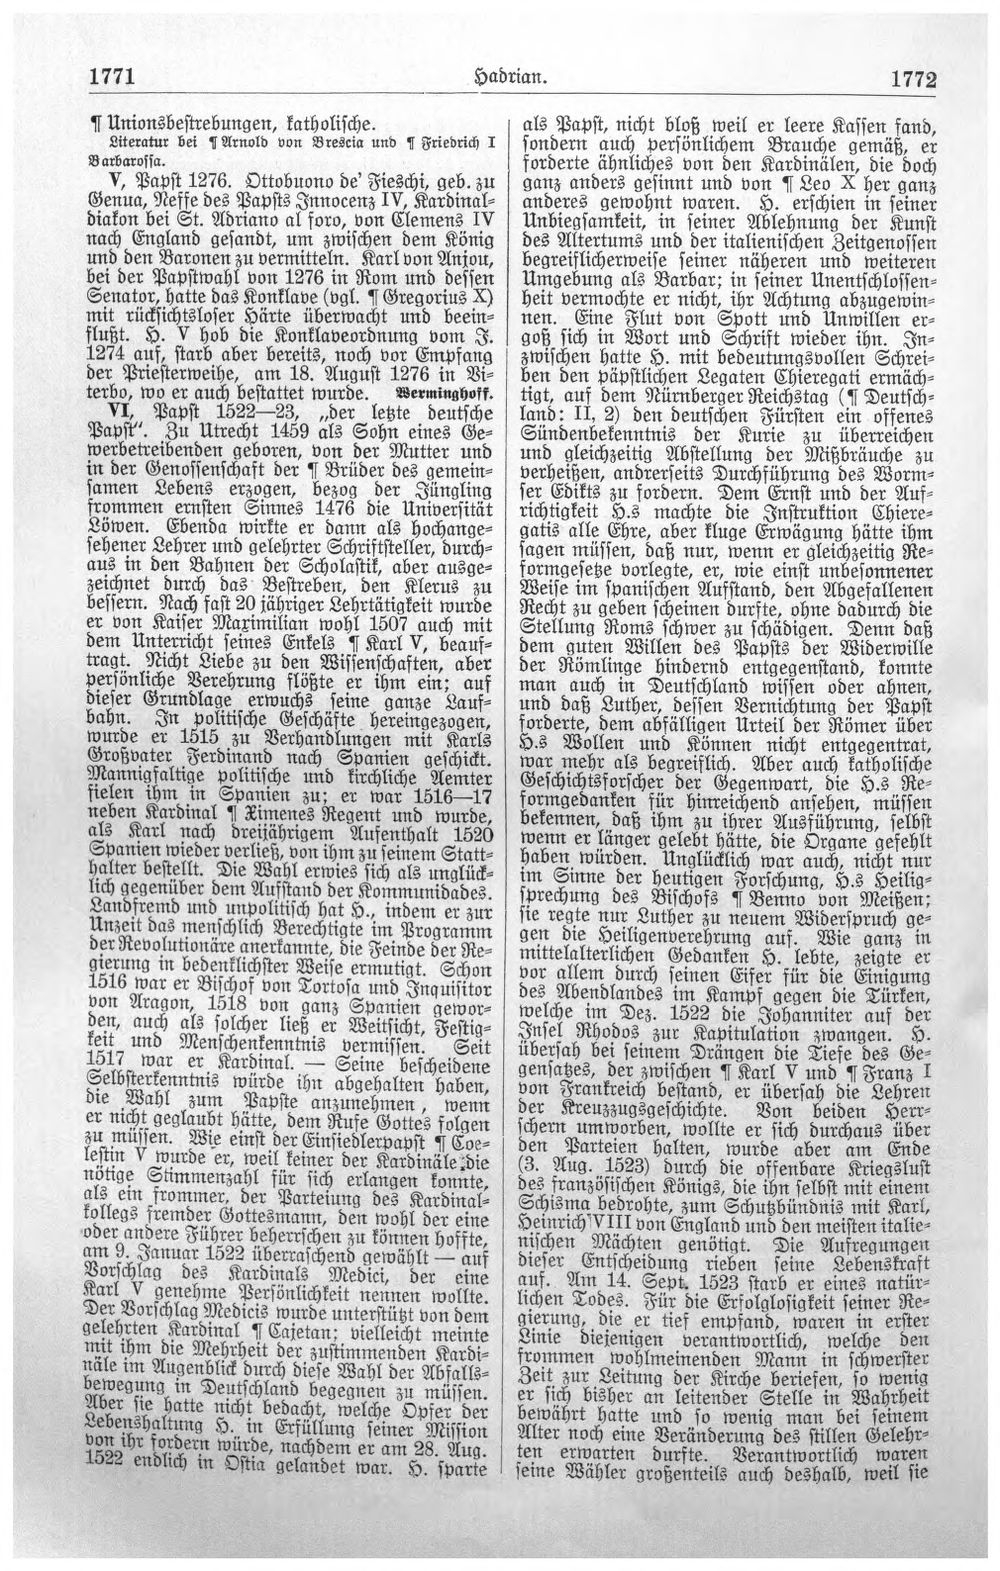 1771
Hadrian.
1772
¶ Unionsbestrebungen, katholische.
Literatur bei ¶ Arnold von Brescia und ¶ Friedrich I
Barbarossa.
V, Papst 1276. Ottobuono de' Fieschi, geb. zu
Genua, Neffe des Papsts Innocenz IV, Kardinal=
diakon bei St. Adriano al foro, von Clemens IV
nach England gesandt, um zwischen dem König
und den Baronen zu vermitteln. Karl von Anjou,
bei der Papstwahl von 1276 in Rom und dessen
Senator, hatte das Konklave (vgl. ¶ Gregorius X)
mit rücksichtsloser Härte überwacht und beein=
flußt. H. V hob die Konklaveordnung vom J.
1274 auf, starb aber bereits, noch vor Empfang
der Priesterweihe, am 18. August 1276 in Vi=
terbo, wo er auch bestattet wurde. Werminghoff.
VI, Papst 1522—23, „der letzte deutsche
Papst“. Zu Utrecht 1459 als Sohn eines Ge=
werbetreibenden geboren, von der Mutter und
in der Genossenschaft der ¶ Brüder des gemein=
samen Lebens erzogen, bezog der Jüngling
frommen ernsten Sinnes 1476 die Universität
Löwen. Ebenda wirkte er dann als hochange=
sehener Lehrer und gelehrter Schriftsteller, durch=
aus in den Bahnen der Scholastik, aber ausge=
zeichnet durch das Bestreben, den Klerus zu
bessern. Nach fast 20 jähriger Lehrtätigkeit wurde
er von Kaiser Maximilian wohl 1507 auch mit
dem Unterricht seines Enkels ¶ Karl V, beauf=
tragt. Nicht Liebe zu den Wissenschaften, aber
persönliche Verehrung flößte er ihm ein; auf
dieser Grundlage erwuchs seine ganze Lauf=
bahn. In politische Geschäfte hereingezogen,
wurde er 1515 zu Verhandlungen mit Karls
Großvater Ferdinand nach Spanien geschickt.
Mannigfaltige politische und kirchliche Aemter
fielen ihm in Spanien zu; er war 1516—17
neben Kardinal ¶ Ximenes Regent und wurde,
als Karl nach dreijährigem Aufenthalt 1520
Spanien wieder verließ, von ihm zu seinem Statt=
halter bestellt. Die Wahl erwies sich als unglück=
lich gegenüber dem Aufstand der Kommunidades.
Landfremd und unpolitisch hat H., indem er zur
Unzeit das menschlich Berechtigte im Programm
der Revolutionäre anerkannte, die Feinde der Re=
gierung in bedenklichster Weise ermutigt. Schon
1516 war er Bischof von Tortosa und Inquisitor
von Aragon, 1518 von ganz Spanien gewor=
den, auch als solcher ließ er Weitsicht, Festig=
keit und Menschenkenntnis vermissen. Seit
1517 war er Kardinal. — Seine bescheidene
Selbsterkenntnis würde ihn abgehalten haben,
die Wahl zum Papste anzunehmen, wenn
er nicht geglaubt hätte, dem Rufe Gottes folgen
zu müssen. Wie einst der Einsiedlerpapst ¶ Coe=
lestin V wurde er, weil keiner der Kardinäle die
nötige Stimmenzahl für sich erlangen konnte,
als ein frommer, der Parteiung des Kardinal=
kollegs fremder Gottesmann, den wohl der eine
oder andere Führer beherrschen zu können hoffte,
am 9. Januar 1522 überraschend gewählt — auf
Vorschlag des Kardinals Medici, der eine
Karl V genehme Persönlichkeit nennen wollte.
Der Vorschlag Medicis wurde unterstützt von dem
gelehrten Kardinal ¶ Cajetan; vielleicht meinte
mit ihm die Mehrheit der zustimmenden Kardi=
näle im Augenblick durch diese Wahl der Abfalls=
bewegung in Deutschland begegnen zu müssen.
Aber sie hatte nicht bedacht, welche Opfer der
Lebenshaltung H. in Erfüllung seiner Mission
von ihr fordern würde, nachdem er am 28. Aug.
1522 endlich in Ostia gelandet war. H. sparte
als Papst, nicht bloß weil er leere Kassen fand,
sondern auch persönlichem Brauche gemäß, er
forderte ähnliches von den Kardinälen, die doch
ganz anders gesinnt und von ¶ Leo X her ganz
anderes gewohnt waren. H. erschien in seiner
Unbiegsamkeit, in seiner Ablehnung der Kunst
des Altertums und der italienischen Zeitgenossen
begreiflicherweise seiner näheren und weiteren
Umgebung als Barbar; in seiner Unentschlossen=
heit vermochte er nicht, ihr Achtung abzugewin=
nen. Eine Flut von Spott und Unwillen er=
goß sich in Wort und Schrift wieder ihn. In=
zwischen hatte H. mit bedeutungsvollen Schrei=
ben den päpstlichen Legaten Chieregati ermäch=
tigt, auf dem Nürnberger Reichstag (¶ Deutsch=
land: II, 2) den deutschen Fürsten ein offenes
Sündenbekenntnis der Kurie zu überreichen
und gleichzeitig Abstellung der Mißbräuche zu
verheißen, andrerseits Durchführung des Worm=
ser Edikts zu fordern. Dem Ernst und der Auf=
richtigkeit H.s machte die Instruktion Chiere=
gatis alle Ehre, aber kluge Erwägung hätte ihm
sagen müssen, daß nur, wenn er gleichzeitig Re=
formgesetze vorlegte, er, wie einst unbesonnener
Weise im spanischen Aufstand, den Abgefallenen
Recht zu geben scheinen durfte, ohne dadurch die
Stellung Roms schwer zu schädigen. Denn daß
dem guten Willen des Papsts der Widerwille
der Römlinge hindernd entgegenstand, konnte
man auch in Deutschland wissen oder ahnen,
und daß Luther, dessen Vernichtung der Papst
forderte, dem abfälligen Urteil der Römer über
H.s Wollen und Können nicht entgegentrat,
war mehr als begreiflich. Aber auch katholische
Geschichtsforscher der Gegenwart, die H.s Re=
formgedanken für hinreichend ansehen, müssen
bekennen, daß ihm zu ihrer Ausführung, selbst
wenn er länger gelebt hätte, die Organe gefehlt
haben würden. Unglücklich war auch, nicht nur
im Sinne der heutigen Forschung, H.s Heilig=
sprechung des Bischofs ¶ Benno von Meißen;
sie regte nur Luther zu neuem Widerspruch ge=
gen die Heiligenverehrung auf. Wie ganz in
mittelalterlichen Gedanken H. lebte, zeigte er
vor allem durch seinen Eifer für die Einigung
des Abendlandes im Kampf gegen die Türken,
welche im Dez. 1522 die Johanniter auf der
Insel Rhodos zur Kapitulation zwangen. H.
übersah bei seinem Drängen die Tiefe des Ge=
gensatzes, der zwischen ¶ Karl V und ¶ Franz I
von Frankreich bestand, er übersah die Lehren
der Kreuzzugsgeschichte. Von beiden Herr=
schern umworben, wollte er sich durchaus über
den Parteien halten, wurde aber am Ende
(3. Aug. 1523) durch die offenbare Kriegslust
des französischen Königs, die ihn selbst mit einem
Schisma bedrohte, zum Schutzbündnis mit Karl,
Heinrich VIII von England und den meisten italie=
nischen Mächten genötigt. Die Aufregungen
dieser Entscheidung rieben seine Lebenskraft
auf. Am 14. Sept. 1523 starb er eines natür=
lichen Todes. Für die Erfolglosigkeit seiner Re=
gierung, die er tief empfand, waren in erster
Linie diejenigen verantwortlich, welche den
frommen wohlmeinenden Mann in schwerster
Zeit zur Leitung der Kirche beriefen, so wenig
er sich bisher an leitender Stelle in Wahrheit
bewährt hatte und so wenig man bei seinem
Alter noch eine Veränderung des stillen Gelehr=
ten erwarten durfte. Verantwortlich waren
seine Wähler großenteils auch deshalb, weil sie